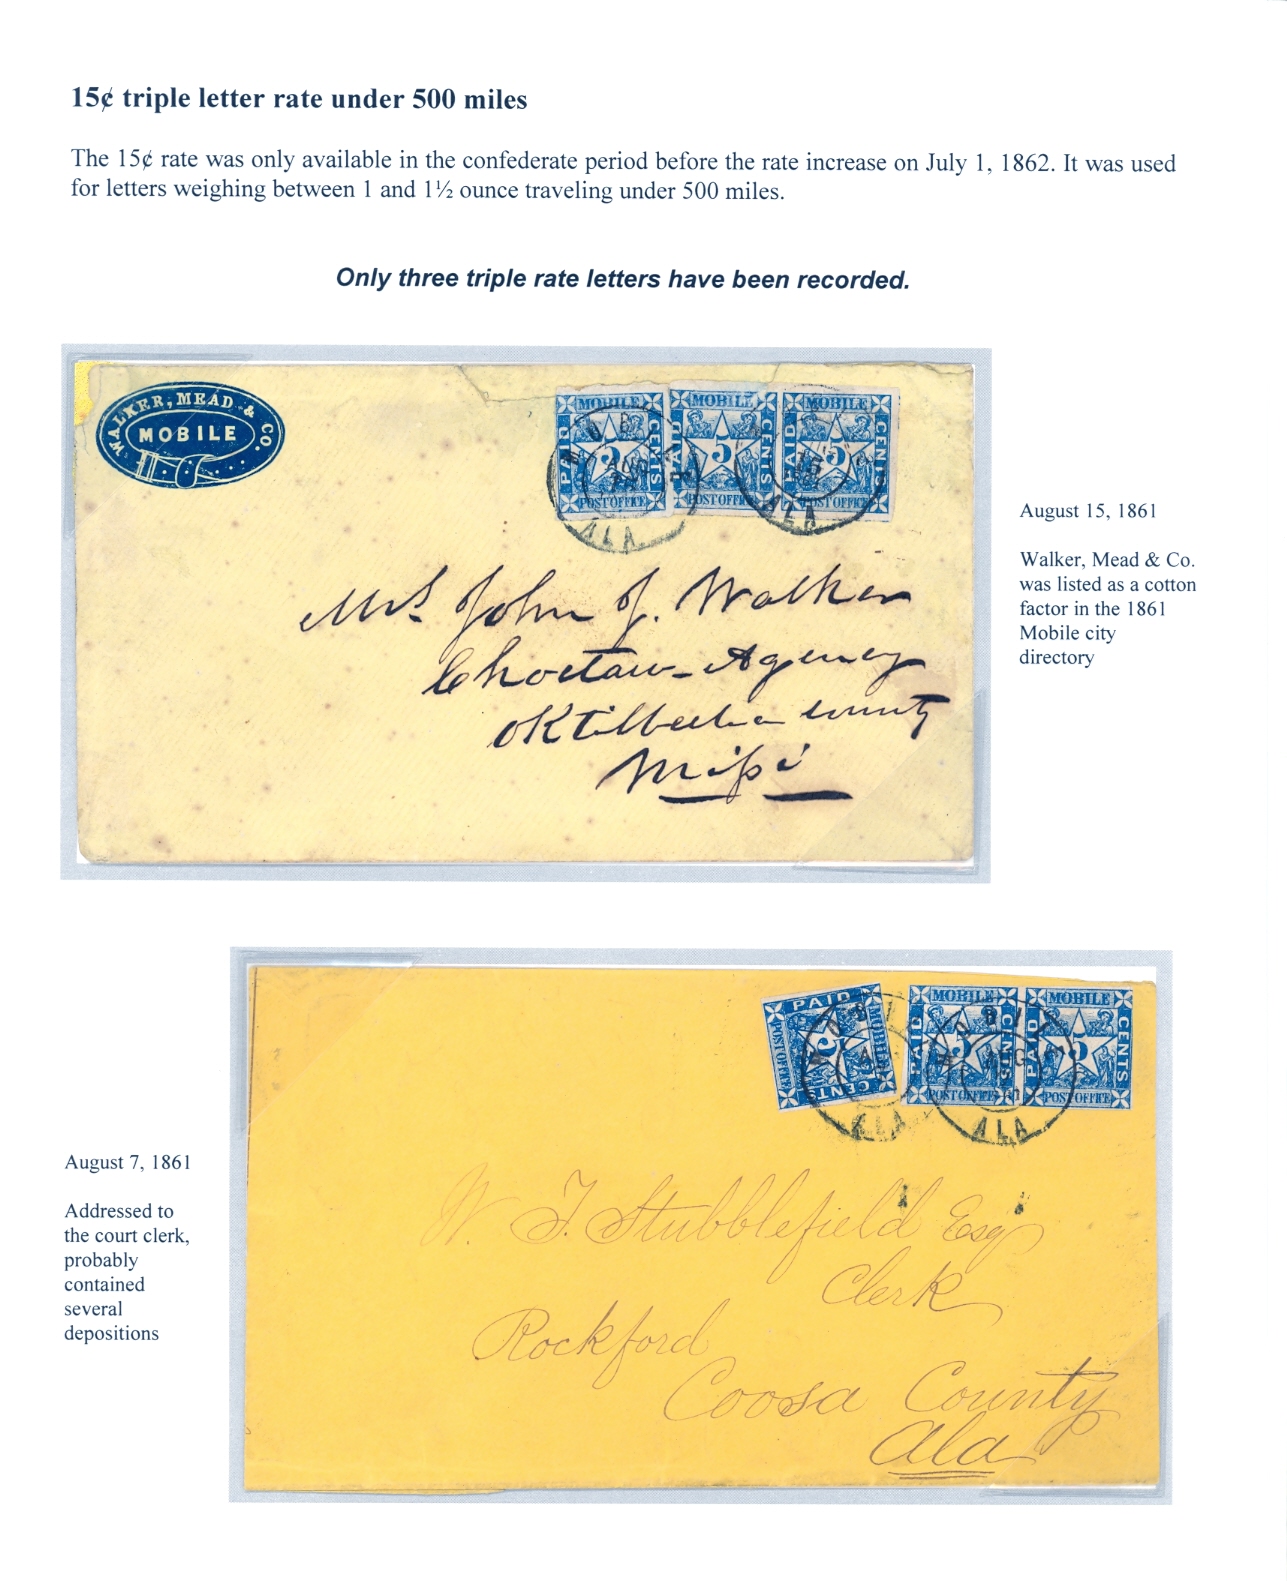 15¢ triple letter rate under 500 miles
The 15¢ rate was only available in the confederate period before the rate increase on July 1, 1862. It was used
for letters weighing between 1 and 1½ ounce traveling under 500 miles.
Only three triple rate letters have been recorded.
WALKER, MEAD & CO.
MOBILE
MOBILE
PAID
5
CENTS
POST OFFICE
MOBILE
PAID
5
CENTS
POST OFFICE
MOBILE
PAID
5
CENTS
POST OFFICE
MOBILE
AUG
15
ALA
15
ALA
Mrs John J. Walker
Choctaw Agency
Oktibbeha County
Missi
August 15, 1861
Walker, Mead & Co.
was listed as a cotton
factor in the 1861
Mobile city
directory
PAID
MOBILE
5
POST OFFICE
CENTS
MOBILE
PAID
5
CENTS
POST OFFICE
MOBILE
PAID
5
CENTS
POST OFFICE
ALA
AUG
ALA
W. T. Stubblefield Esqr
Clerk
Rockford
Coosa County
Ala
August 7, 1861
Addressed to
the court clerk,
probably
contained
several
depositions